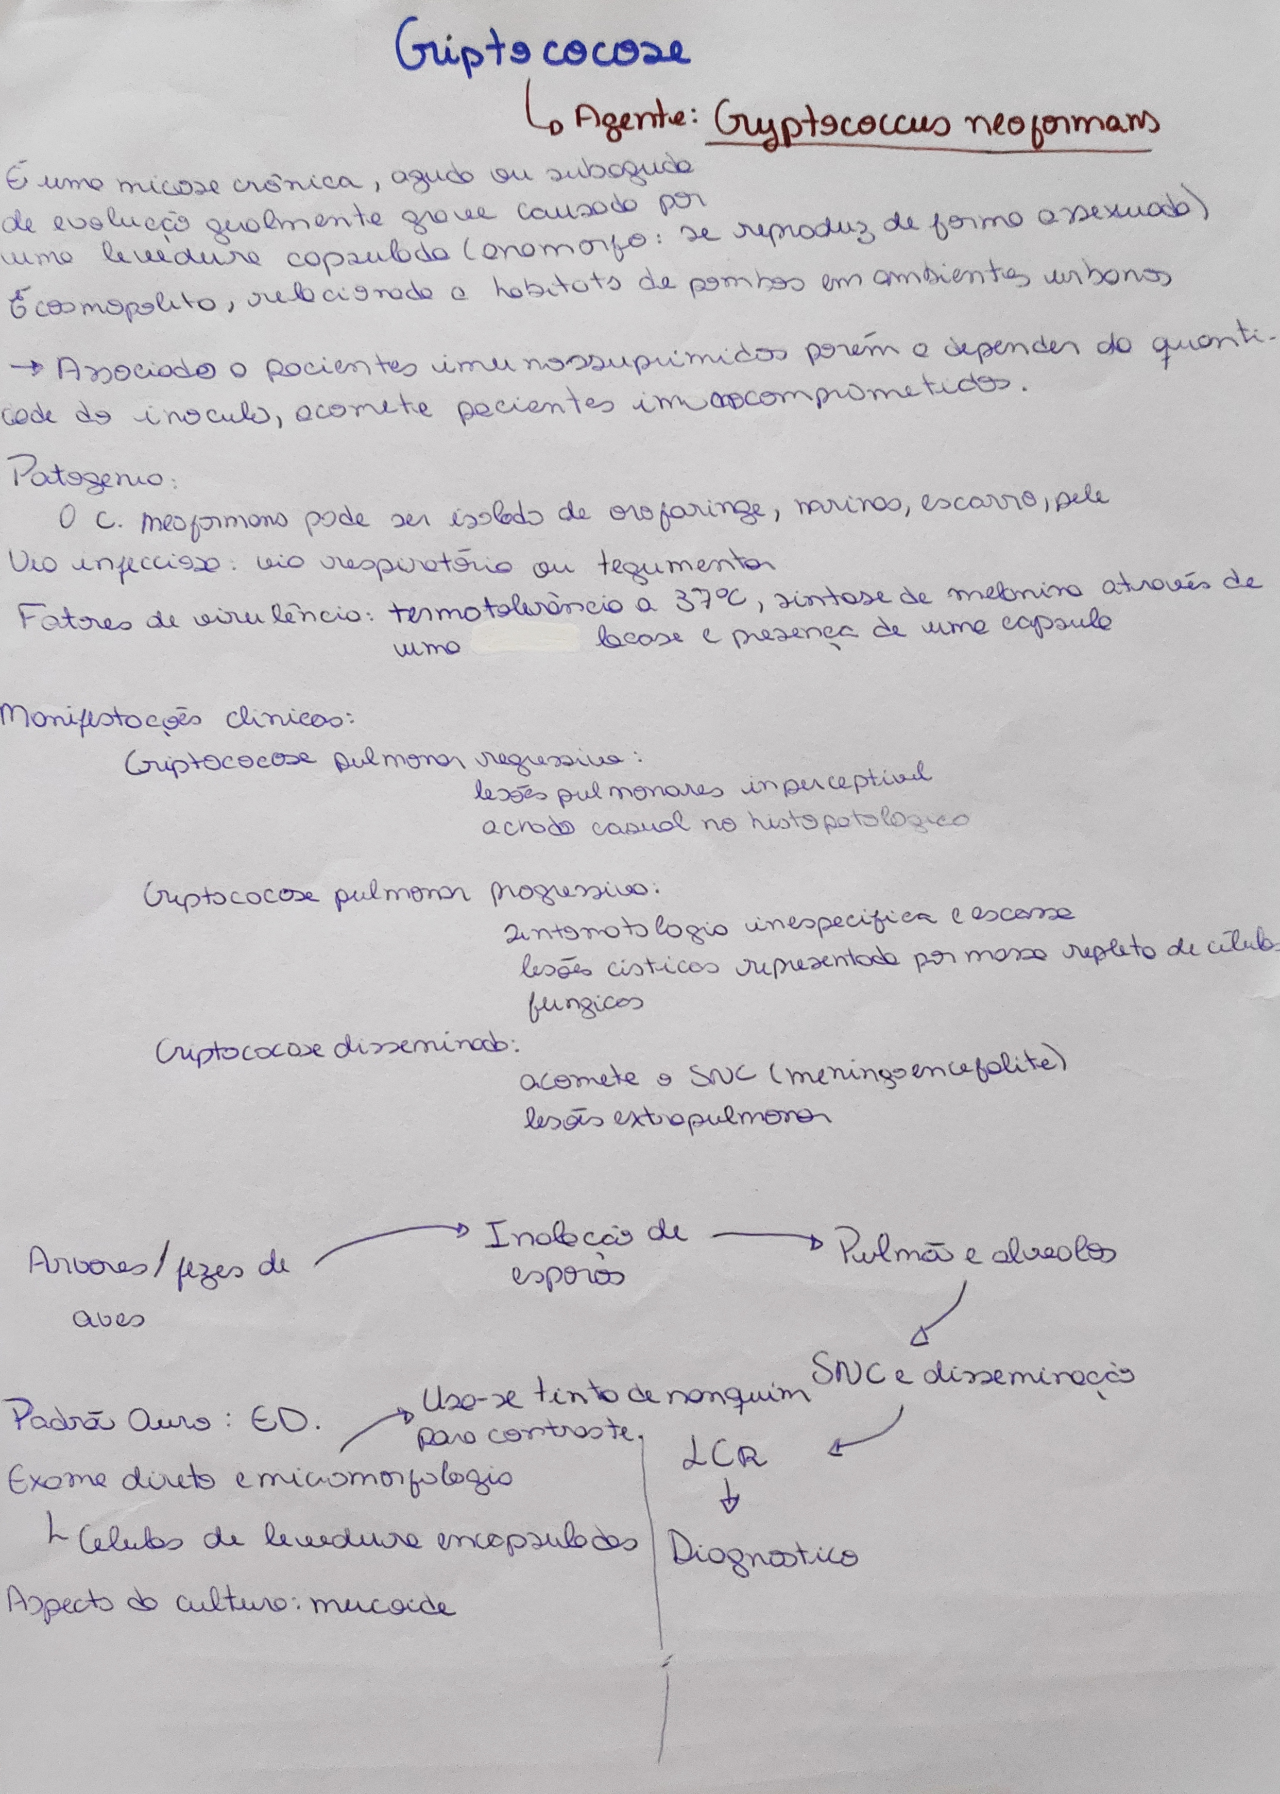 Criptococose
↳ Agente: Cryptococcus neoformans
É uma micose crônica, aguda ou subaguda
de evolução geralmente grave causada por
uma levedura capsulada (anamorfo: se reproduz de forma assexuada)
É cosmopolita, relacionada a habitats de pombos em ambientes urbanos
→ Associada a pacientes imunossuprimidos porém a depender da quanti-
dade do inoculo, acomete pacientes imunocomprometidos.
Patogenia:
O C. neoformans pode ser isolado de orofaringe, narinas, escarro, pele
Via infecciosa: via respiratória ou tegumentar
Fatores de virulência: termotolerância a 37°C, sintase de melanina através de
uma lacase e presença de uma capsula
Manifestações clinicas:
Criptococose pulmonar regressiva:
lesões pulmonares inperceptivel
achado casual no histopatologico
Criptococose pulmonar progressiva:
sintomatologia inespecifica e escassa
lesões císticas representada por massa repleta de células
fungicas
Criptococose disseminada:
acomete o SNC (meningoencefalite)
lesões extrapulmonar
Arvores/fezes de
aves
→ Inalação de
esporos
→ Pulmão e alveolos
SNC e disseminação
LCR
↓
Diagnostico
Padrão Ouro: ED.
Usa-se tinta de nanquim
para contraste.
Exame direto e micromorfologia
Celulas de levedura encapsuladas
Aspecto da cultura: mucoide